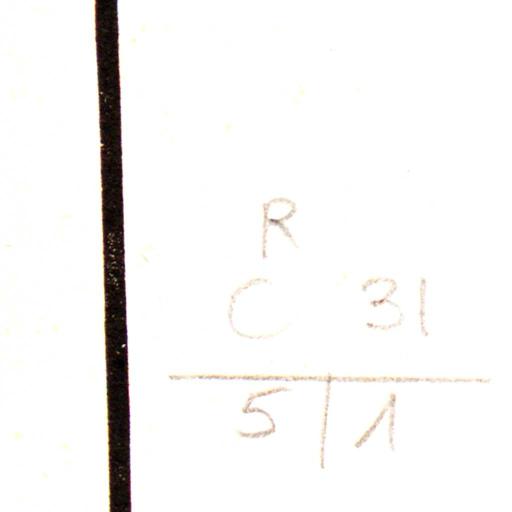 R
C 31
5|1